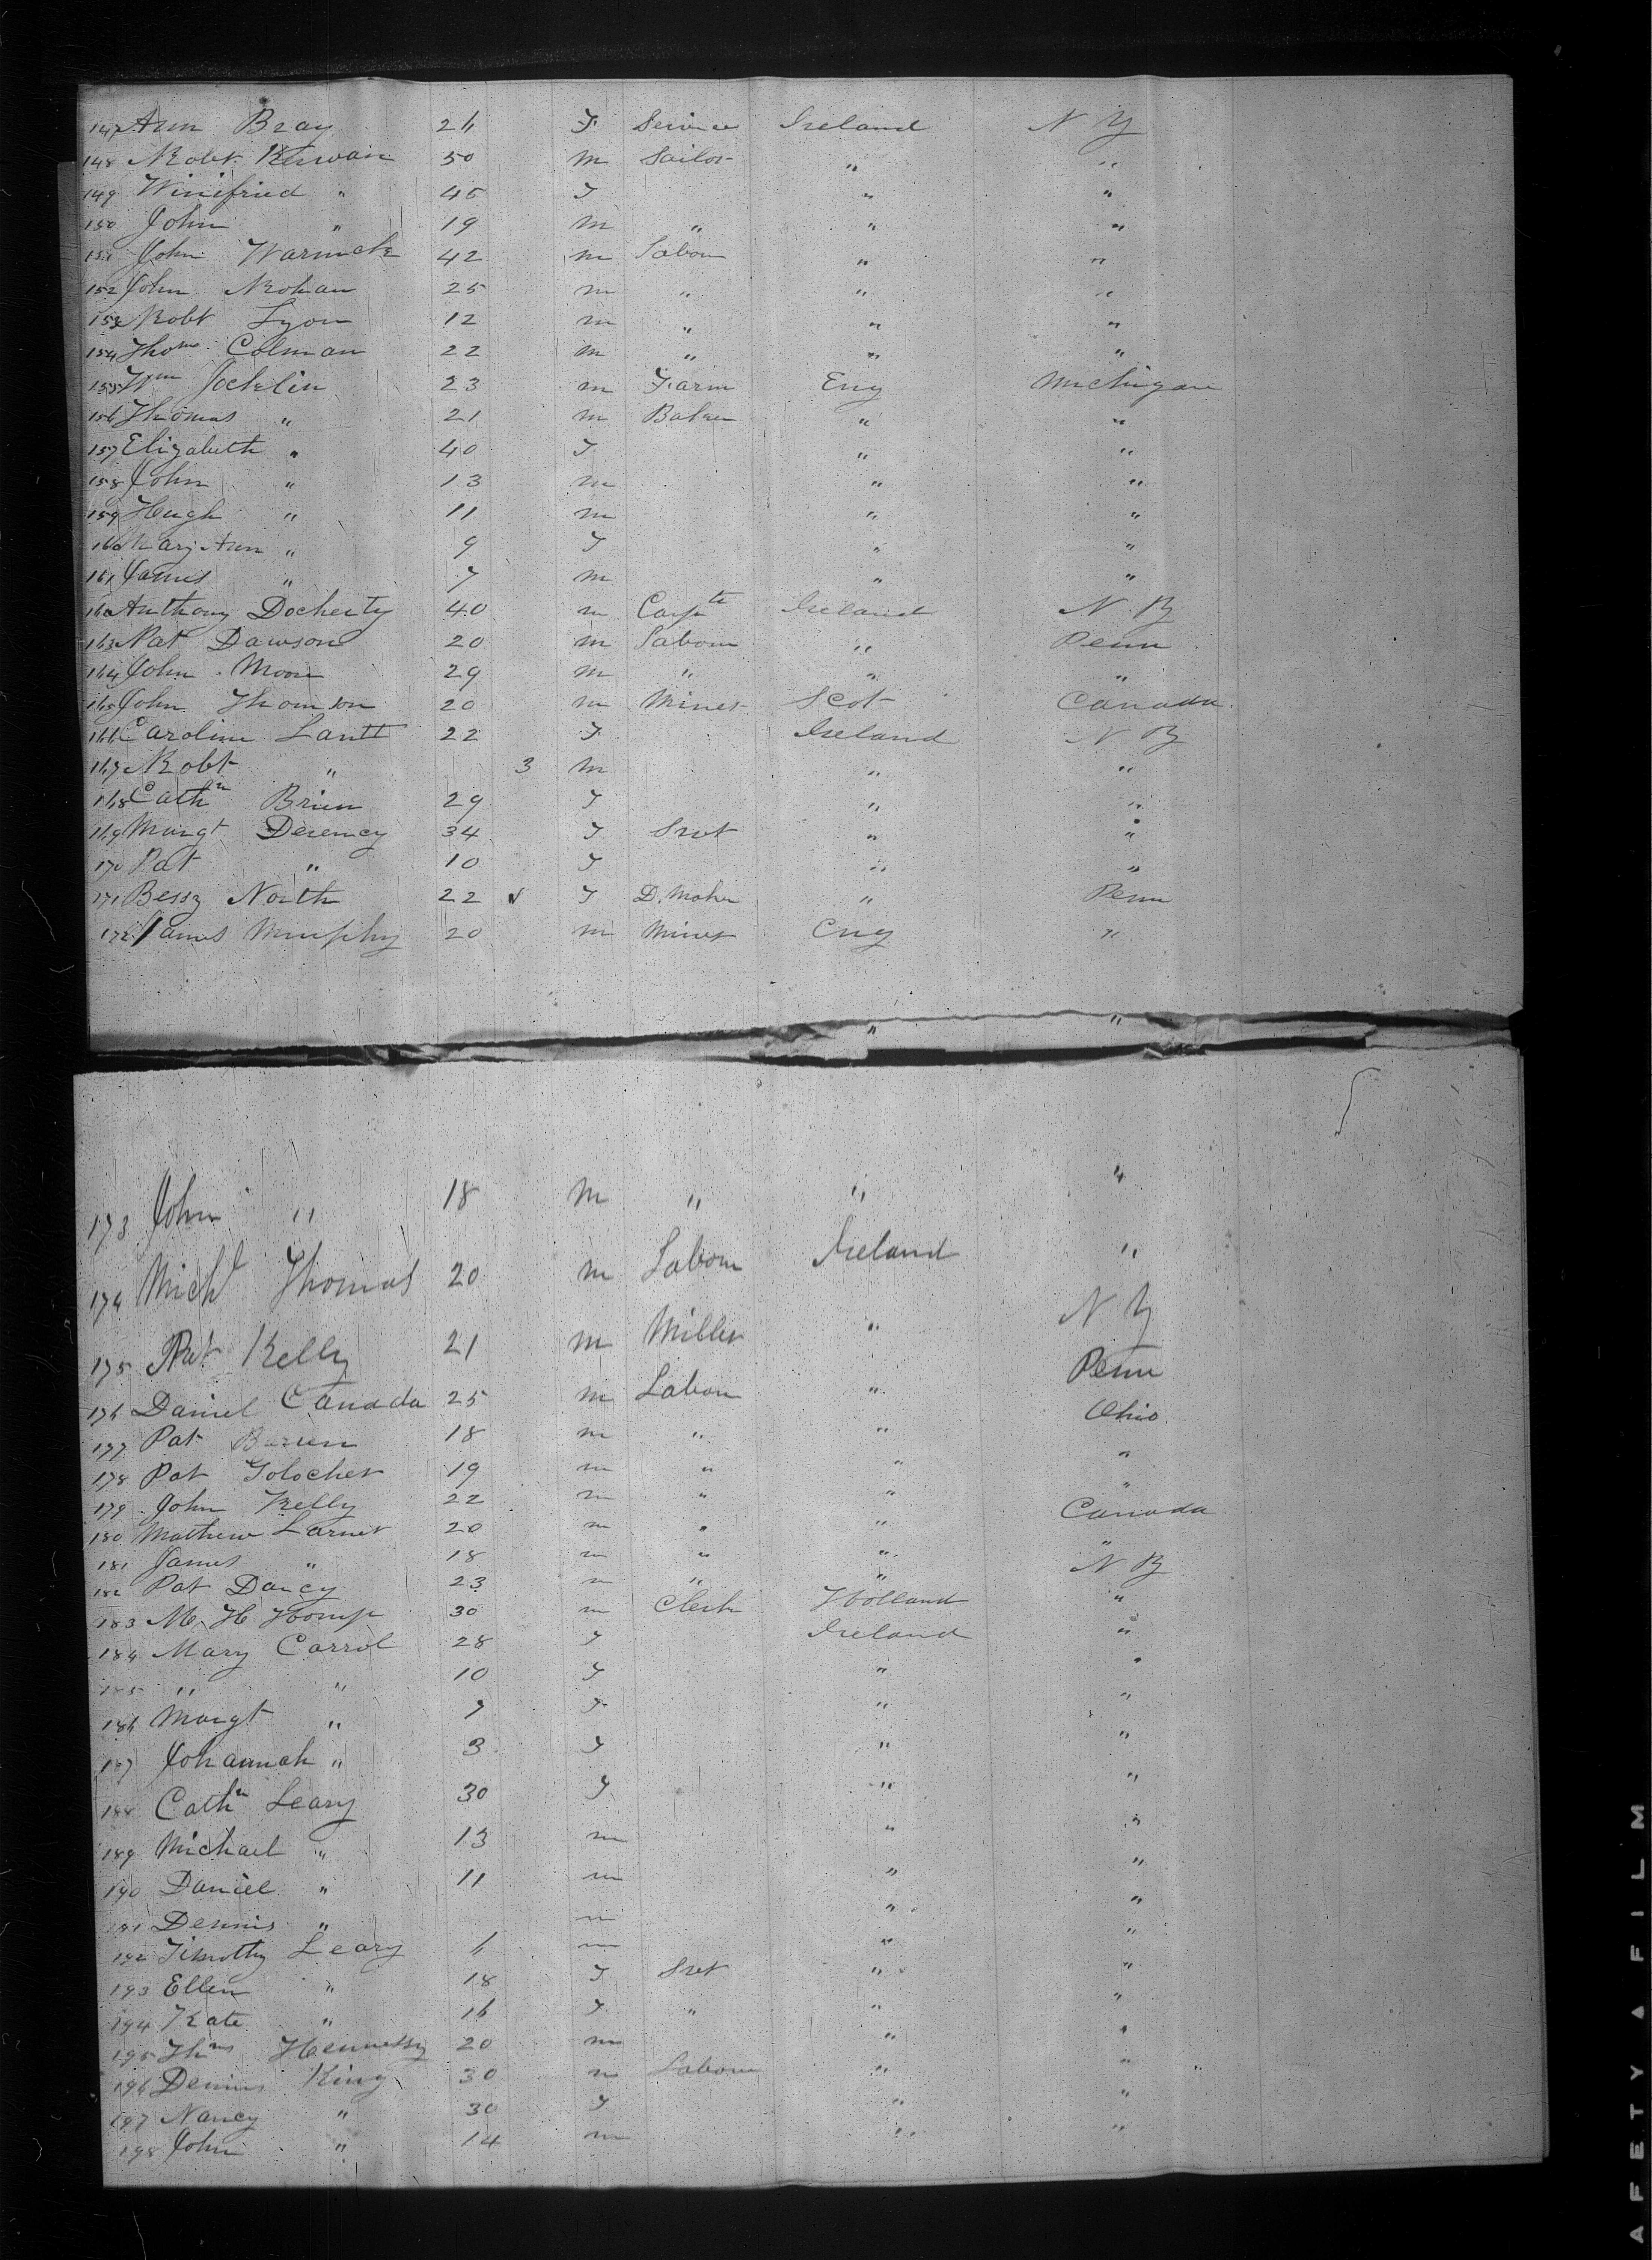 147 Ann Bray 26 F Service Ireland N Y
148 Robt Kerwan 50 m Sailor " "
149 Winifried " 45 F " "
150 John " 19 m " " "
151 John Warmick 42 m Labour " "
152 John Rohan 25 m " " "
153 Robt Lyon 12 m " " "
154 Thoms Colman 22 m " " "
155 Wm Jocklin 23 m Farm Eng Michigan
156 Thomas " 21 m Baker " "
157 Elizabeth " 40 F " "
158 John " 13 m " "
159 Hugh " 11 m " "
160 Mary Ann " 9 F " "
161 James " 7 m " "
162 Anthony Docherty 40 m Carptr Ireland N Y
163 Pat Dawson 20 m Labour " Penn
164 John Moore 29 m " " "
165 John Thomson 20 m Miner Scot Canada
166 Caroline Lantt 22 F Ireland N Y
167 Robt " 3 m " "
168 Cathn Brien 29 F " "
169 Margt Deremcy 34 F Srvt " "
170 Pat " 10 F " "
171 Bessy North 22 F D. Maker " Penn
172 James Murphy 20 m Miner Eng "
" "
173 John " 18 m " " "
174 Michl Thomas 20 m Labour Ireland "
175 Pat Kelly 21 m Miller " N Y
176 Daniel Canada 25 m Labour " Penn
177 Pat 18 m " " Ohio
178 Pat Golocher 19 m " " "
179 John Kelly 22 m " " "
180 Mathew Larner 20 m " " Canada
181 James " 18 m " " "
182 Pat Dancy 23 m " " N Y
183 M. H. Homp 30 m Clerk Holland "
184 Mary Carrol 28 F Ireland "
185 " " 10 F " "
186 Margt " 7 F " "
187 Johannah " 3 F " "
188 Cathn Leary 30 F " "
189 Michael " 13 m " "
190 Daniel " 11 m " "
191 Dennis " m " "
192 Timothy Leary 6 m " "
193 Ellen " 18 F Srvt " "
194 Kate " 16 F " " "
195 Thms Hennessy 20 m " "
196 Dennis King 30 m Labour " "
197 Nancy " 30 F " "
198 John " 14 m " "
AFETY A FILM